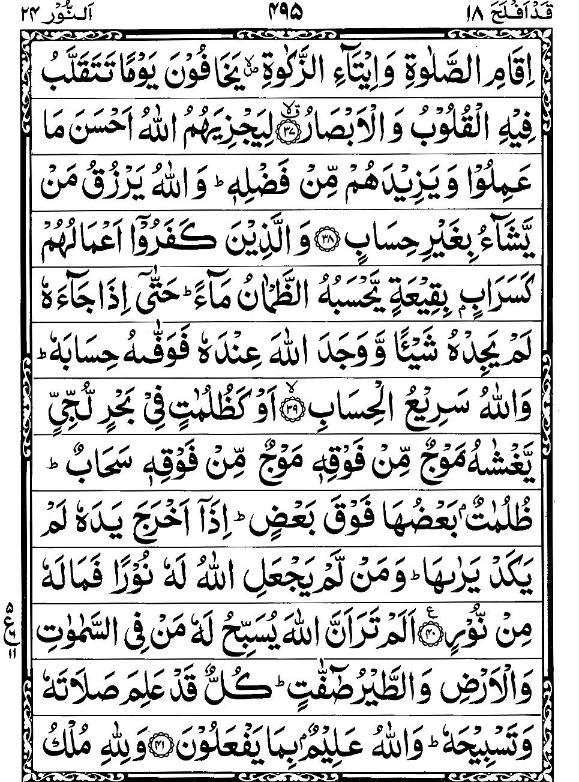 قَدْ اَفْلَحَ ١٨ ٤٩٥ اَلنُّوْر ٢٤
اِقَامِ الصَّلٰوةِ وَاِيْتَآءِ الزَّكٰوةِ ۙ يَخَافُوْنَ يَوْمًا تَتَقَلَّبُ
فِيْهِ الْقُلُوْبُ وَالْاَبْصَارُ ۙ﴿٣٧﴾ لِيَجْزِيَهُمُ اللّٰهُ اَحْسَنَ مَا
عَمِلُوْا وَيَزِيْدَهُمْ مِّنْ فَضْلِهٖ ؕ وَاللّٰهُ يَرْزُقُ مَنْ
يَّشَآءُ بِغَيْرِ حِسَابٍ ﴿٣٨﴾ وَالَّذِيْنَ كَفَرُوْۤا اَعْمَالُهُمْ
كَسَرَابٍۭ بِقِيْعَةٍ يَّحْسَبُهُ الظَّمْاٰنُ مَآءً ؕ حَتّٰۤى اِذَا جَآءَهٗ
لَمْ يَجِدْهُ شَيْئًا وَّوَجَدَ اللّٰهَ عِنْدَهٗ فَوَفّٰىهُ حِسَابَهٗ ؕ
وَاللّٰهُ سَرِيْعُ الْحِسَابِ ۙ﴿٣٩﴾ اَوْ كَظُلُمٰتٍ فِيْ بَحْرٍ لُّجِّيٍّ
يَّغْشٰىهُ مَوْجٌ مِّنْ فَوْقِهٖ مَوْجٌ مِّنْ فَوْقِهٖ سَحَابٌ ؕ
ظُلُمٰتٌۢ بَعْضُهَا فَوْقَ بَعْضٍ ؕ اِذَاۤ اَخْرَجَ يَدَهٗ لَمْ
يَكَدْ يَرٰىهَا ؕ وَمَنْ لَّمْ يَجْعَلِ اللّٰهُ لَهٗ نُوْرًا فَمَا لَهٗ
مِنْ نُّوْرٍ ﴿٤٠﴾ اَلَمْ تَرَ اَنَّ اللّٰهَ يُسَبِّحُ لَهٗ مَنْ فِي السَّمٰوٰتِ
وَالْاَرْضِ وَالطَّيْرُ صٰٓفّٰتٍ ؕ كُلٌّ قَدْ عَلِمَ صَلَاتَهٗ
وَتَسْبِيْحَهٗ ؕ وَاللّٰهُ عَلِيْمٌۢ بِمَا يَفْعَلُوْنَ ﴿٤١﴾ وَلِلّٰهِ مُلْكُ
٥
ع
٦
١١